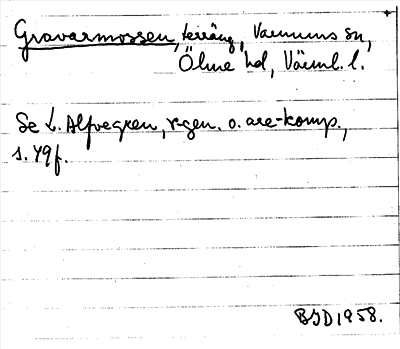 Gravarmossen, terräng, Varnums sn,
Ölme hd, Värml. l.
Se L. Alfvegren, r-gen. o. are-komp.,
s. 49 f.
BJD 1958.